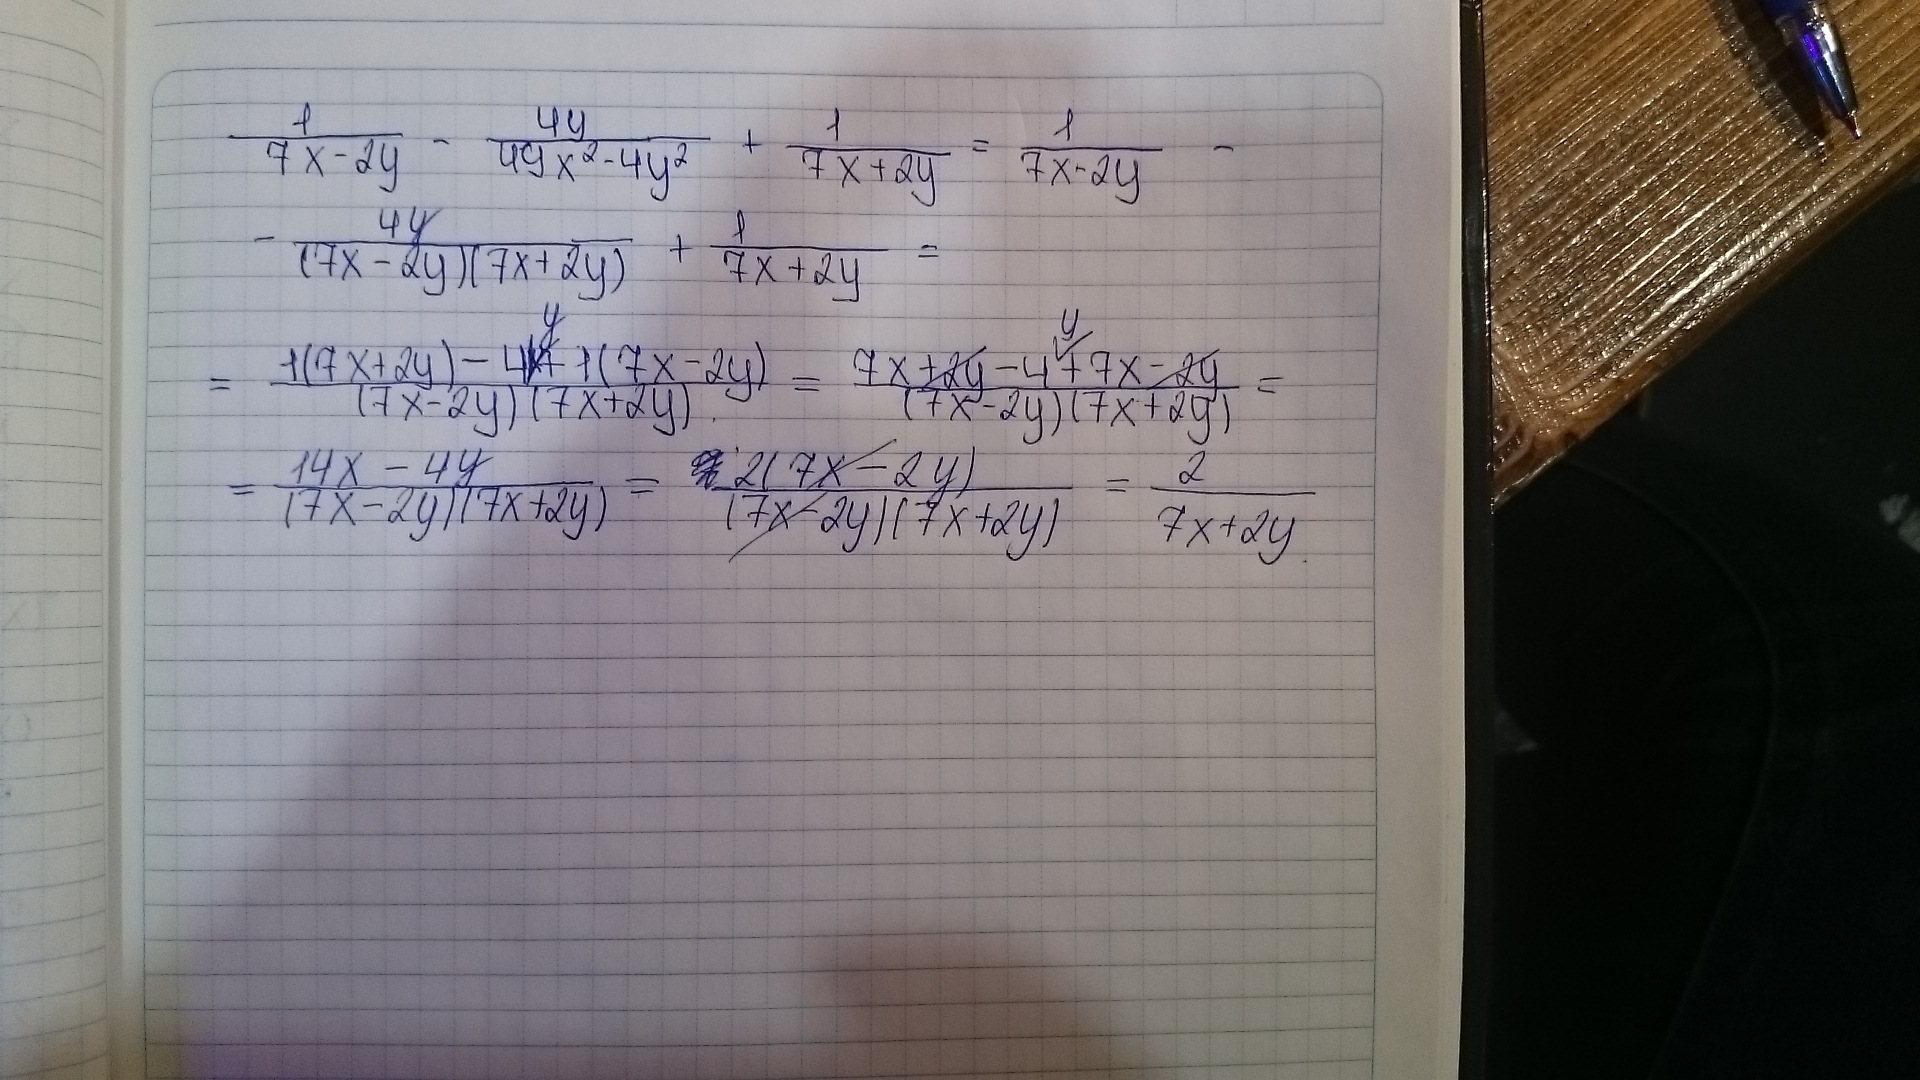 1/(7x-2y) - 4y/(49x²-4y²) + 1/(7x+2y) = 1/(7x-2y) -
- 4y/((7x-2y)(7x+2y)) + 1/(7x+2y) =
= (1(7x+2y)-4y+1(7x-2y))/((7x-2y)(7x+2y)) = (7x+2y-4y+7x-2y)/((7x-2y)(7x+2y)) =
= (14x-4y)/((7x-2y)(7x+2y)) = 2(7x-2y)/((7x-2y)(7x+2y)) = 2/(7x+2y).